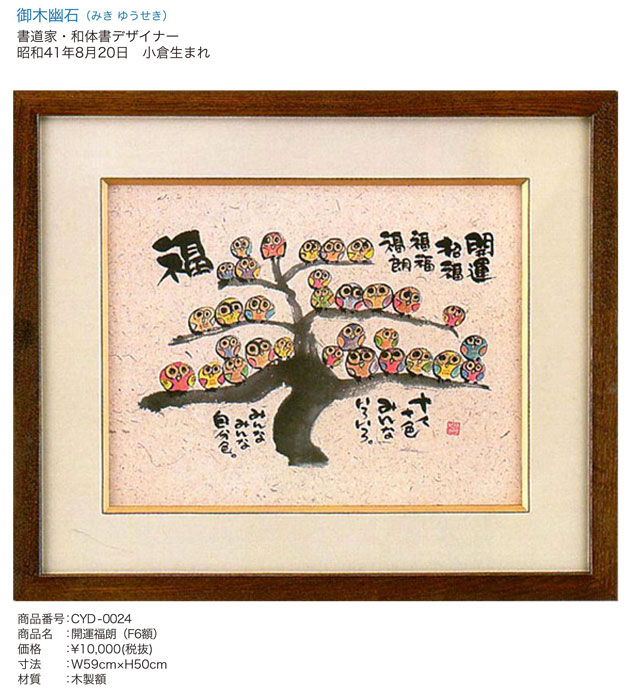 御木幽石（みき ゆうせき）
書道家・和体書デザイナー
昭和41年8月20日　小倉生まれ
開運
招福
福福
福朗
福
十人
十色
みんな
いろいろ。
みんな
みんな
自分色。
商品番号：CYD-0024
商品名　：開運福朗（F6額）
価格　　：¥10,000(税抜)
寸法　　：W59cm×H50cm
材質　　：木製額